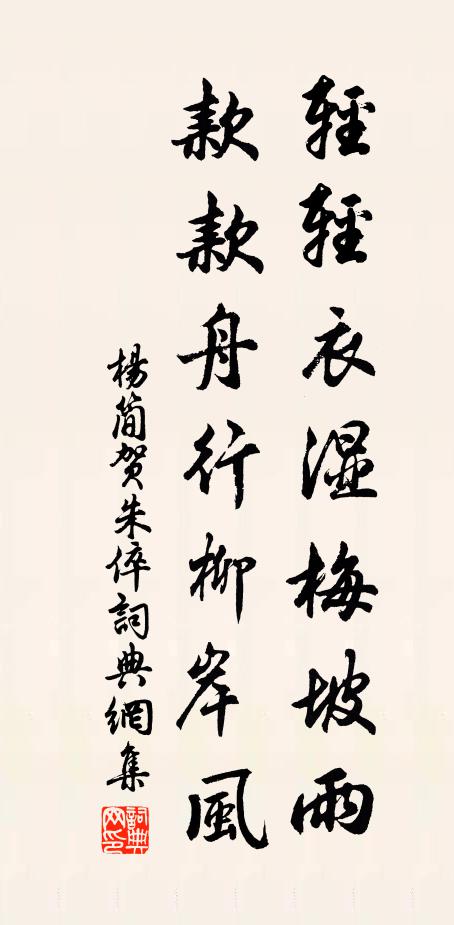 輕輕衣濕梅坡雨
款款舟行柳岸風
楊簡賀朱倅詞典網集
詞典網印